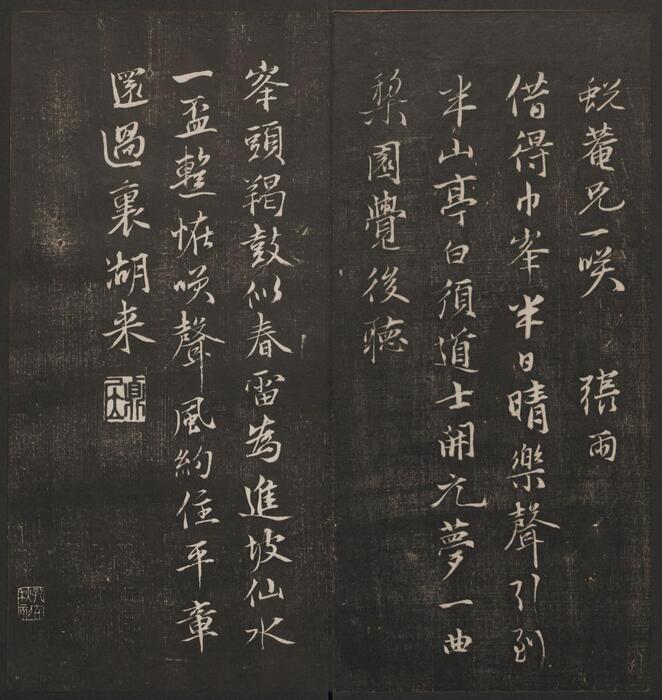 蜕菴兄一咲 張雨
借得巾峯半日晴樂聲引到
半山亭白須道士開元夢一曲
棃園覺後聴
峯頭羯鼓似春雷為進坡仙水
一盃蹔恠咲聲風約住平章
還過裏湖来